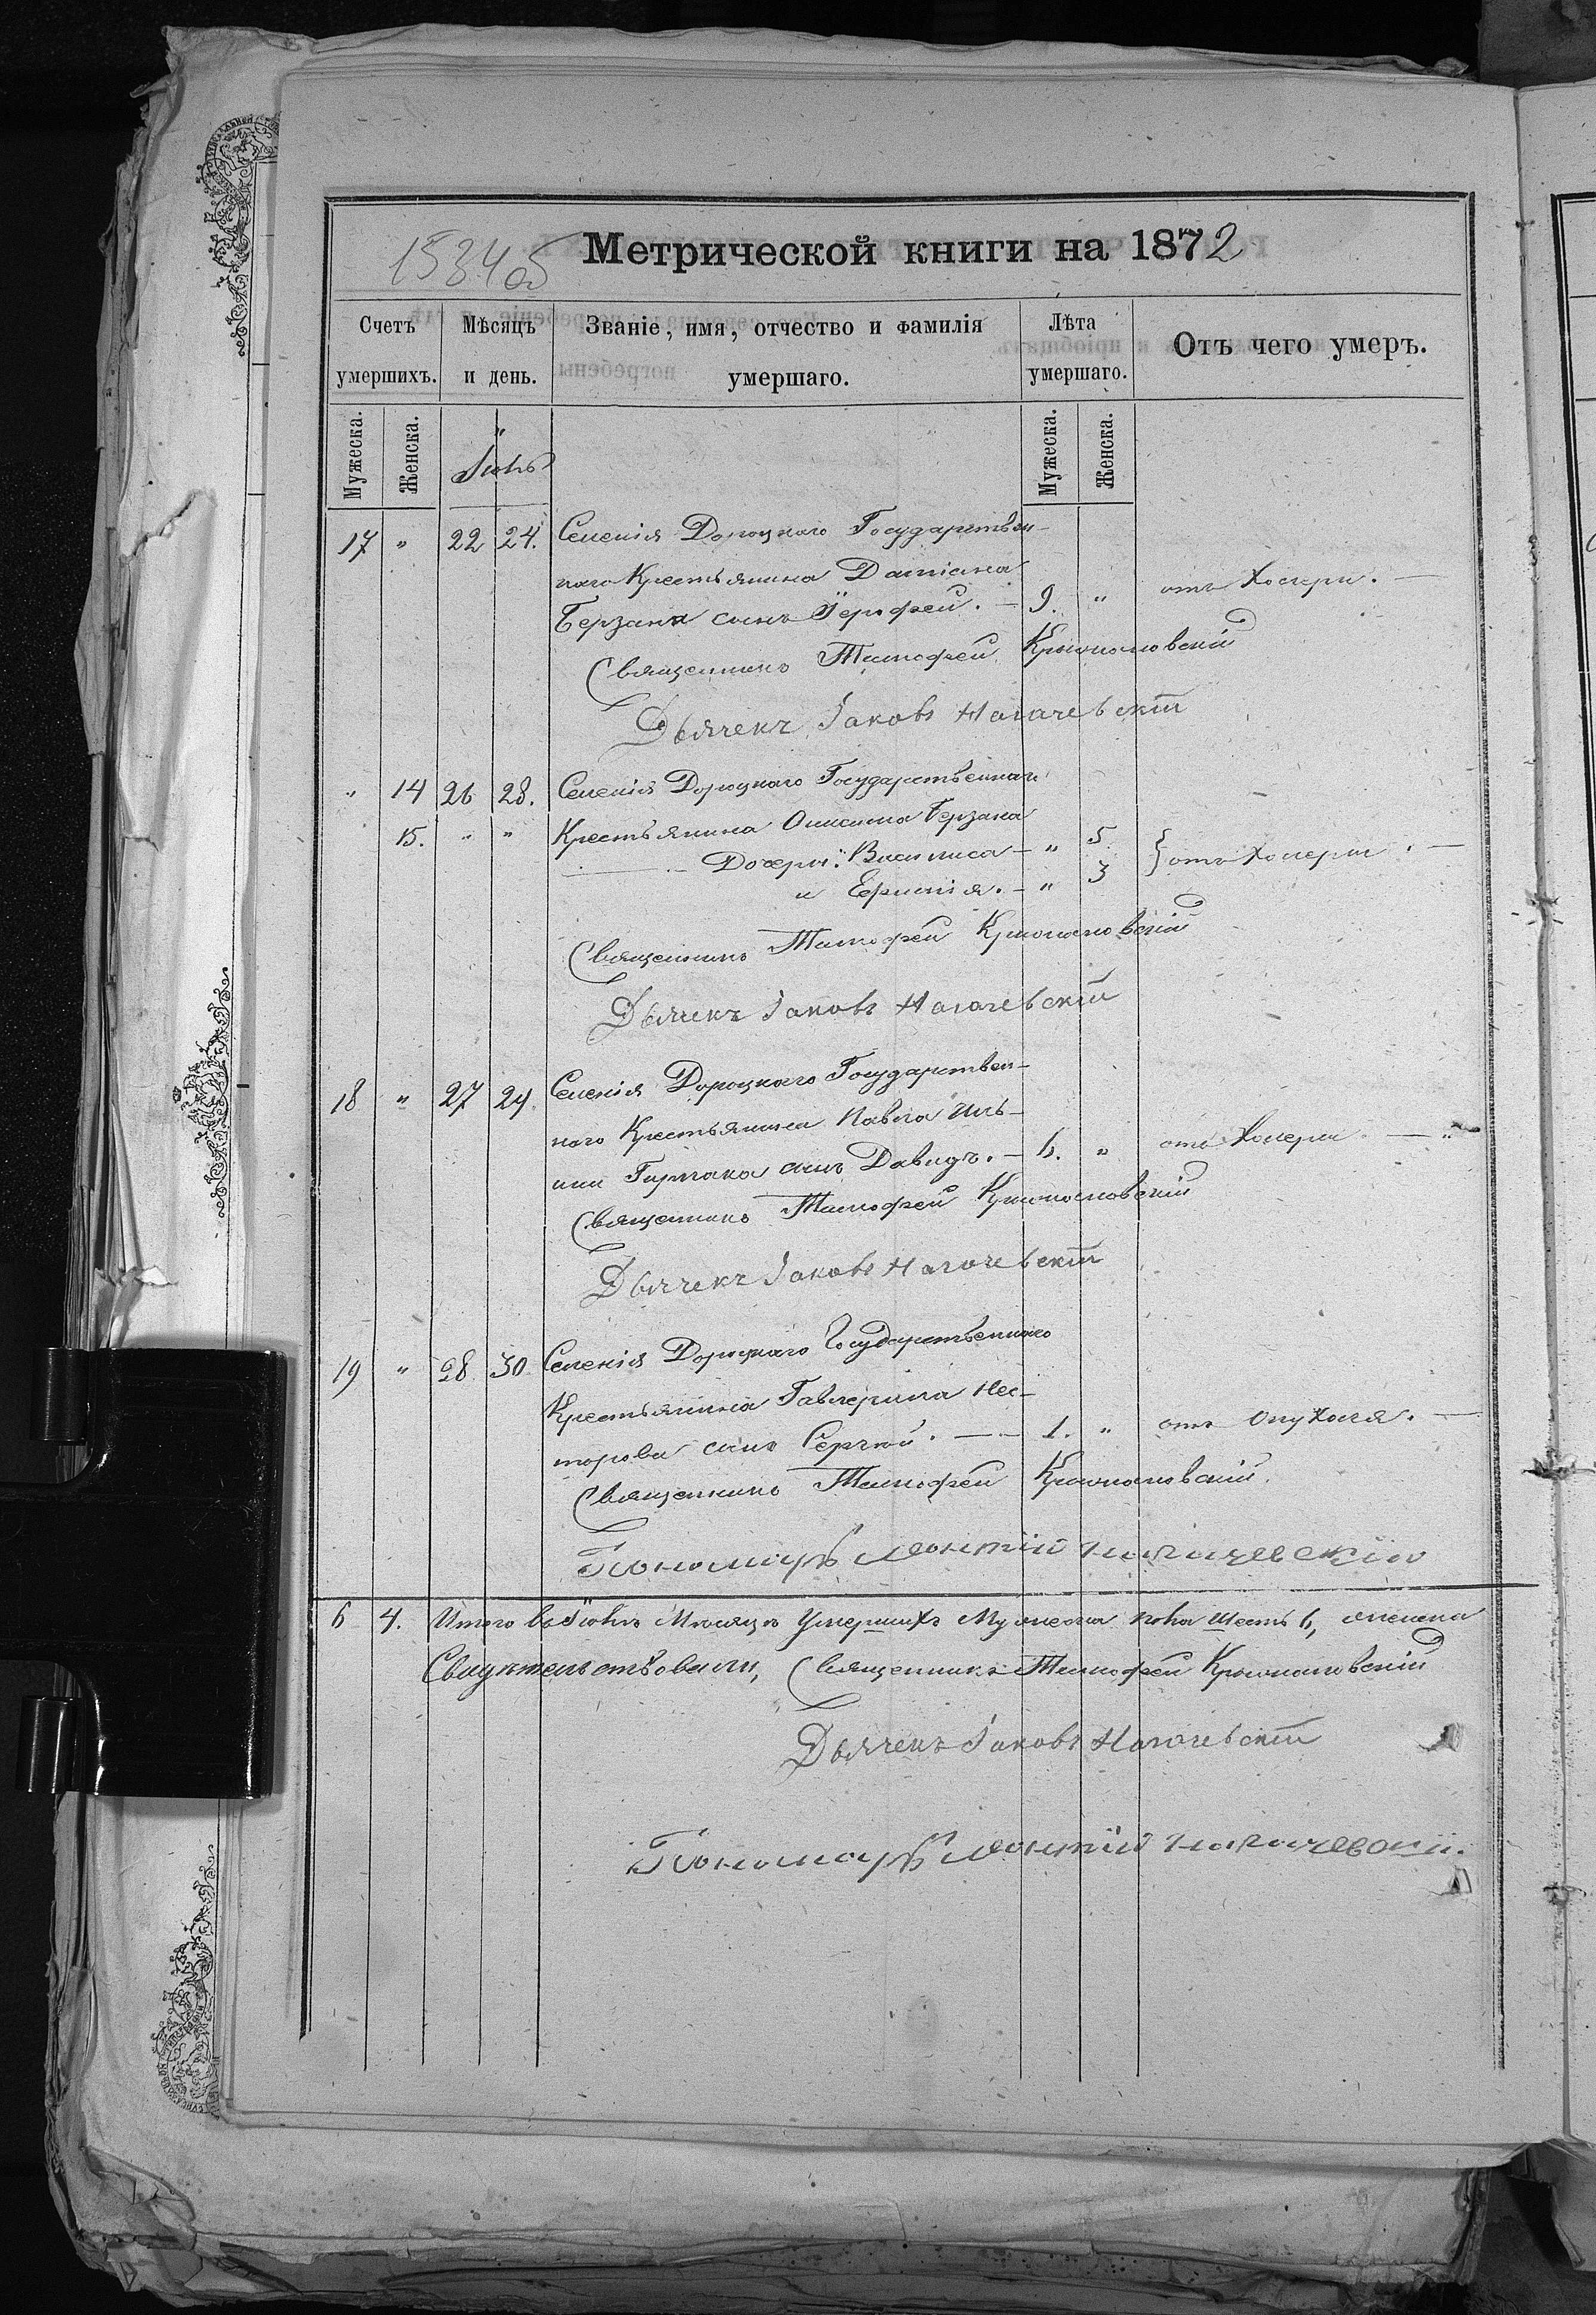 1534 об
Метрической книги на 1872
Счетъ умершихъ.
Мѣсяцъ и день.
Званіе, имя, отчество и фамилія умершаго.
Лѣта умершаго.
Отъ чего умеръ.
Мужеска. Женска.
Іюль
Мужеска. Женска.
17 " 22 24. Селенія Дороцкаго Государствен-
наго Крестьянина Даміана
Берзана сынъ Іерофей. — 9. " отъ Холеры. —
Священникъ Тимофей
Дьячекъ Іаковъ Нагачевскій
" 14 26 28. Селенія Дороцкаго Государственнаго
15. " " Крестьянина Онисима Берзана
Дочери: Василиса — " 5.
и Ефимія. — " 3 } отъ Холеры. —
Священникъ Тимофей
Дьячекъ Іаковъ Нагачевскій
18 " 27 29. Селенія Дороцкаго Государствен-
наго Крестьянина Павла Иль-
ина сынъ Давидъ. — 6. " отъ Холеры. — "
Священникъ Тимофей
Дьячекъ Іаковъ Нагачевскій
19 " 28 30 Селенія Дороцкаго Государственнаго
Крестьянина Гавріила Нес-
торова сынъ Сергій. — 1. " отъ Опухоля. —
Священникъ Тимофей
Пономарь Леонтій Нагачевскій
6 4. Итого въ Іюлѣ Мѣсяцѣ Умершихъ Мужеска пола шесть 6, женска
Свидѣтельствовали, Священникъ Тимофей
Дьячекъ Іаковъ Нагачевскій
Пономарь Леонтій Нагачевскій.